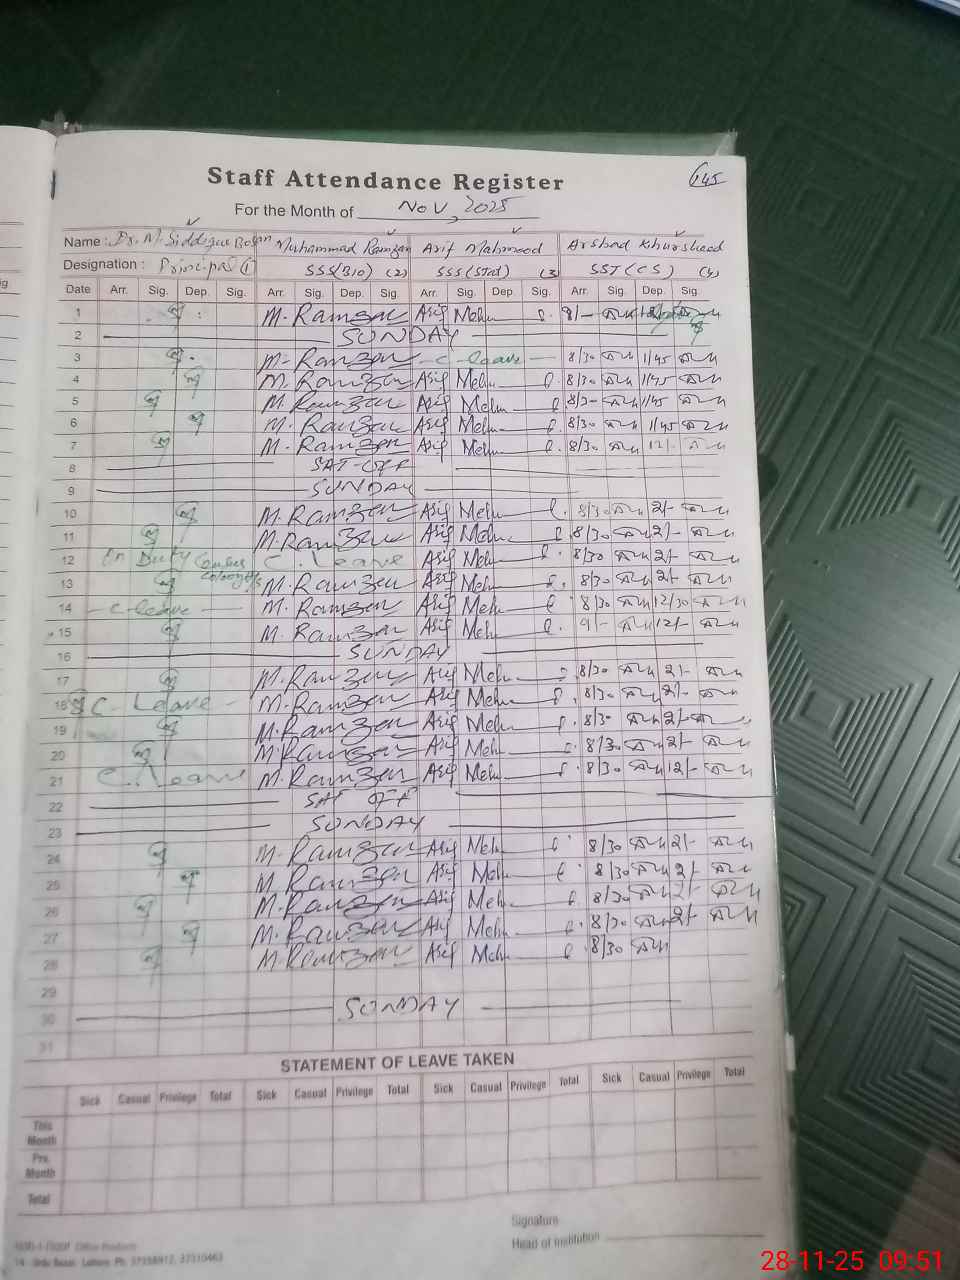 145
Staff Attendance Register
For the Month of Nov, 2025
Name : Dr. M. Siddique Muhammad Ramzan Asif Mahmood Arshad Khursheed
Designation : Principal (1) SSS(BIO) (2) SSS(Stat) (3 SST(CS) (4)
Date Arr. Sig. Dep. Sig. Arr. Sig. Dep. Sig. Arr. Sig. Dep. Sig. Arr. Sig. Dep. Sig.
1 M. Ramzan Asif Meh 8/-
2 SUNDAY
3 M. Ramzan C. leave 8/30 1/45
4 M. Ramzan Asif Meh 8/30 1/45
5 M. Ramzan Asif Meh 8/30 1/45
6 M. Ramzan Asif Meh 8/30 1/45
7 M. Ramzan Asif Meh 8/30 12/-
8 SAT-OFF
9 SUNDAY
10 M. Ramzan Asif Meh 8/30 2/-
11 M. Ramzan Asif Meh 8/30 2/-
12 On Duty C. leave Asif Meh 8/30 2/-
13 M. Ramzan Asif Meh 8/30 2/-
14 C. leave M. Ramzan Asif Meh 8/30 12/30
15 M. Ramzan Asif Meh 9/- 12/-
16 SUNDAY
17 M. Ramzan Asif Meh 8/30 2/-
18 C. Leave M. Ramzan Asif Meh 8/30 2/-
19 M. Ramzan Asif Meh 8/30 2/-
20 M. Ramzan Asif Meh 8/30 2/-
21 C. Leave M. Ramzan Asif Meh 8/30 12/-
22 SAT OFF
23 SUNDAY
24 M. Ramzan Asif Meh 8/30 2/-
25 M. Ramzan Asif Meh 8/30 2/-
26 M. Ramzan Asif Meh 8/30 2/-
27 M. Ramzan Asif Meh 8/30 2/-
28 M. Ramzan Asif Meh 8/30
29
30 SUNDAY
31
STATEMENT OF LEAVE TAKEN
Sick Casual Privilege Total Sick Casual Privilege Total Sick Casual Privilege Total Sick Casual Privilege Total
This Month
Pre. Month
Total
Signature
Head of Institution
Office Products
14 - Urdu Bazar, Lahore. Ph: 37358912, 37310463
28-11-25 09:51